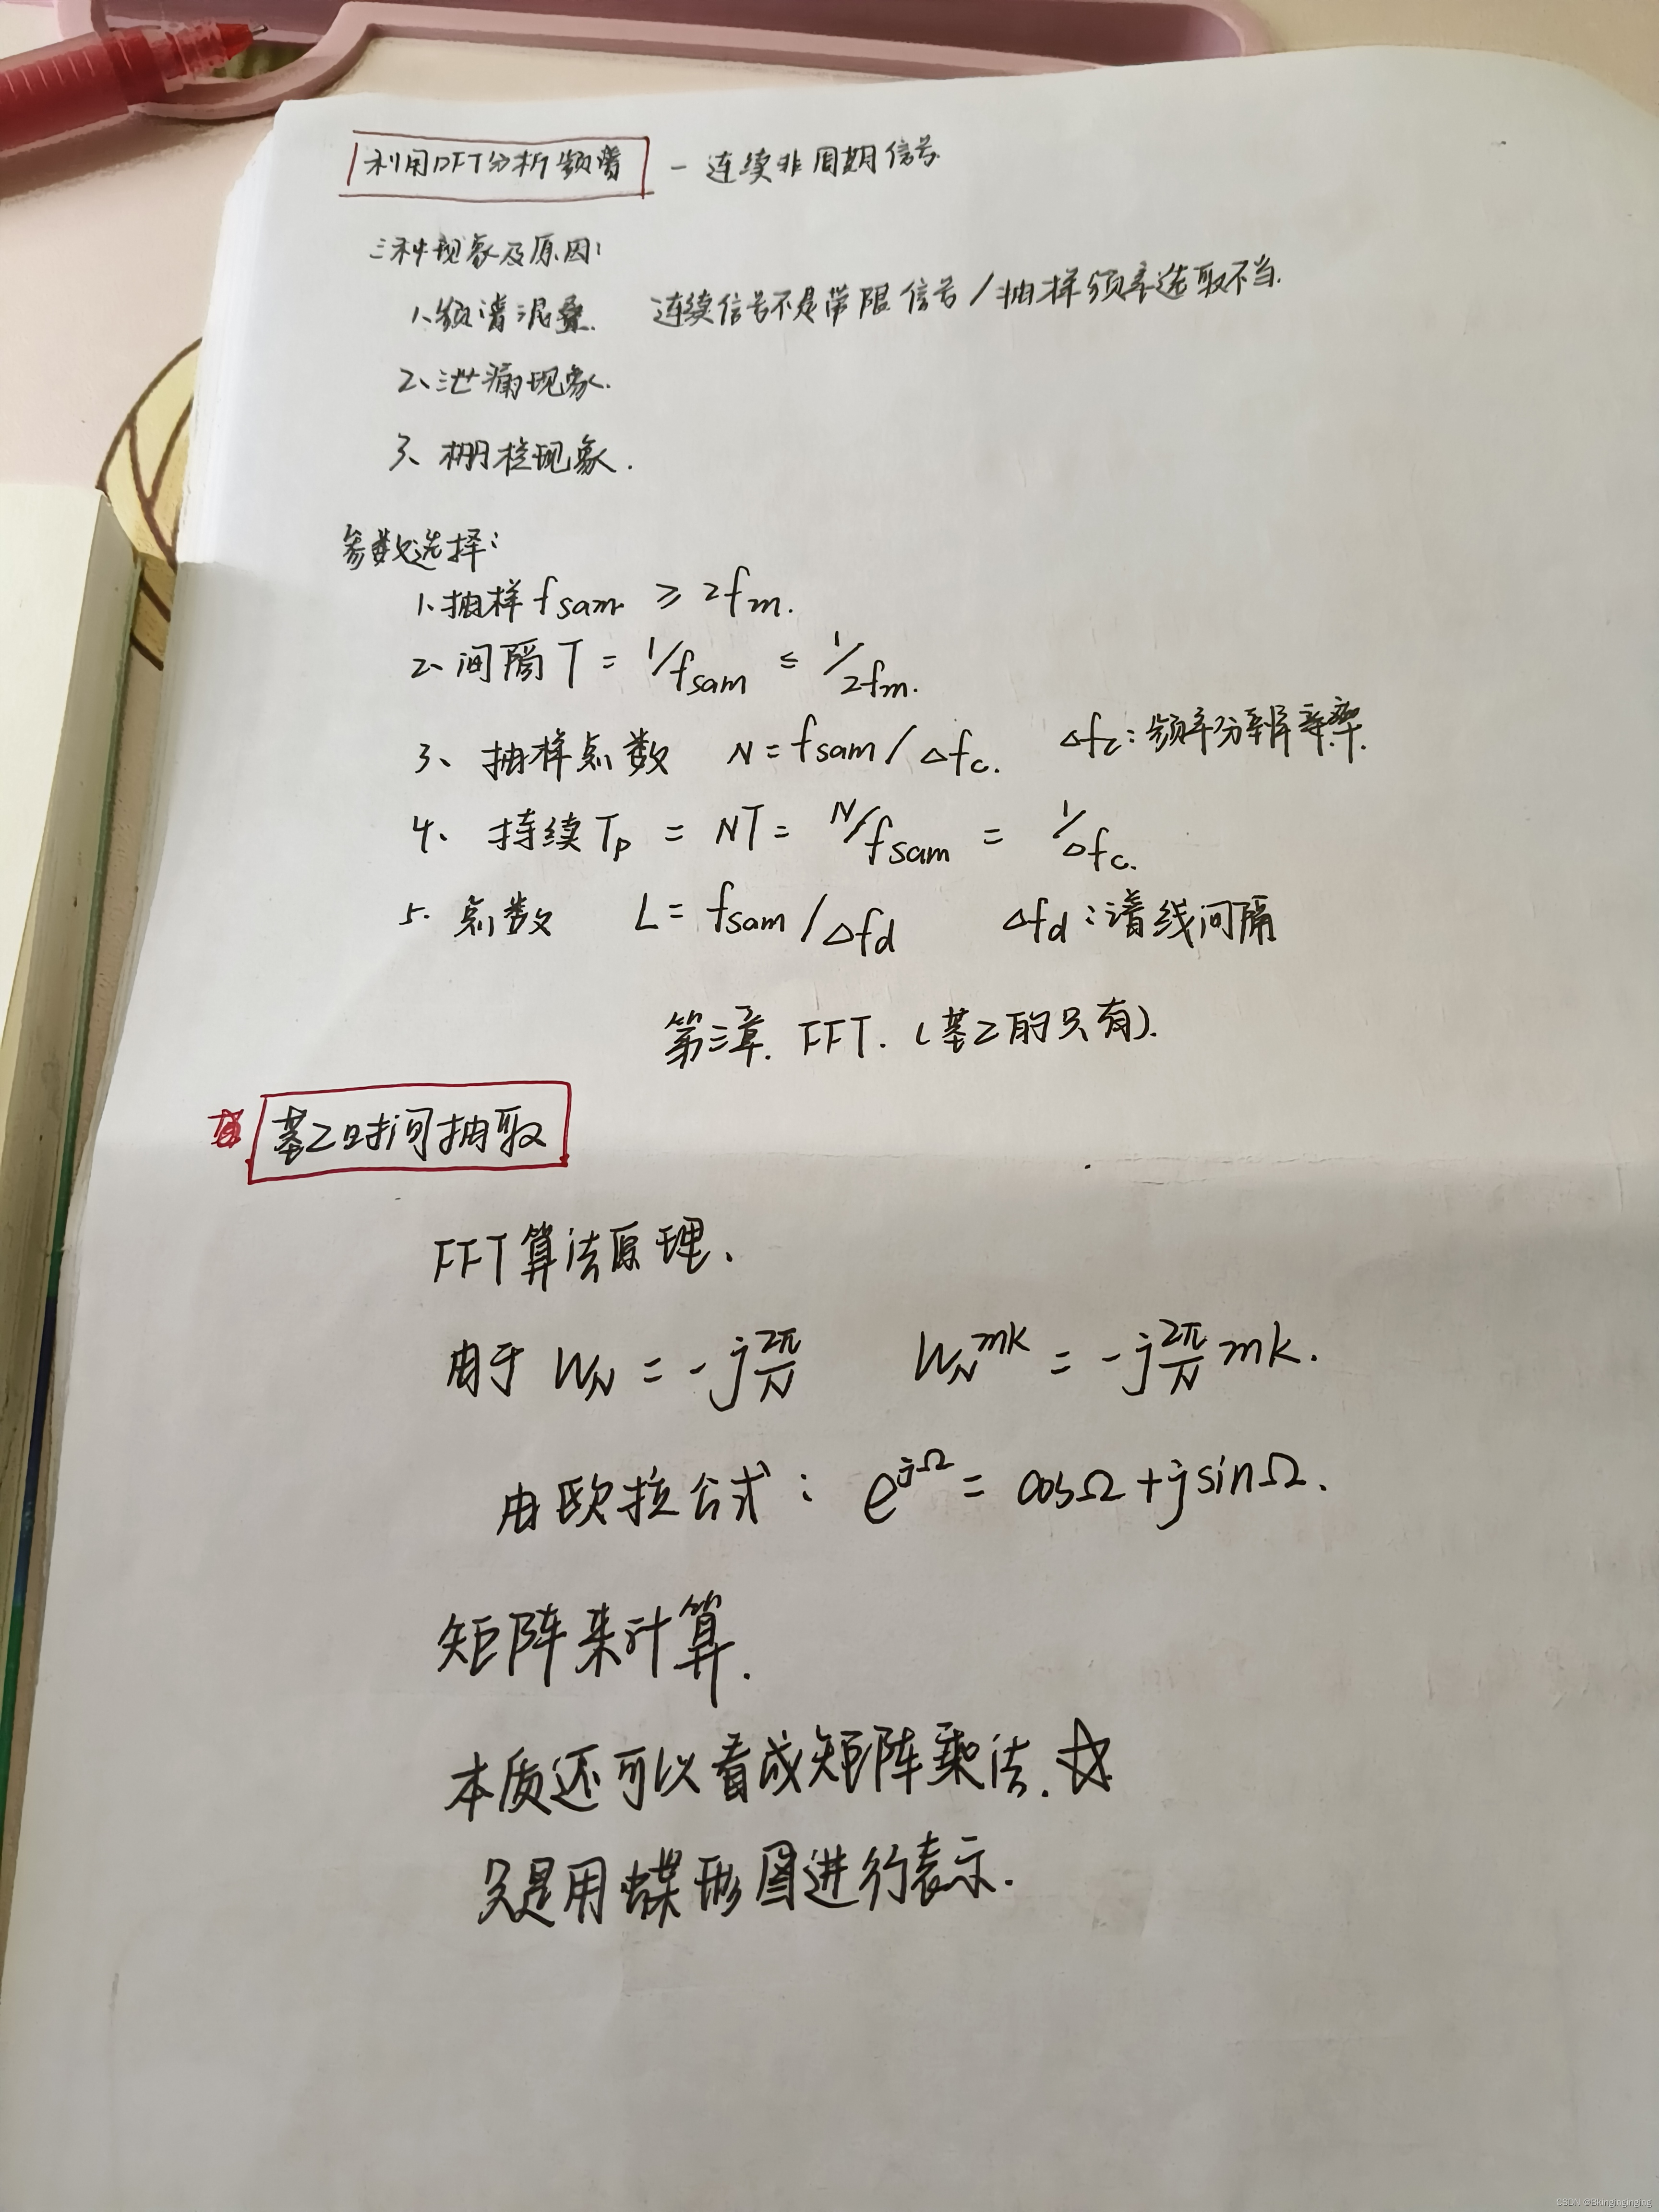 利用DFT分析频谱 - 连续非周期信号
三种现象及原因:
1、频谱混叠. 连续信号不是带限信号/抽样频率选取不当.
2、泄漏现象.
3、栅栏现象.
参数选择:
1、抽样 fsam ≥ 2fm.
2、间隔 T = 1/fsam ≤ 1/2fm.
3、抽样点数 N = fsam / Δfc. Δfc: 频率分辨率.
4、持续 Tp = NT = N/fsam = 1/Δfc.
5. 点数 L = fsam / Δfd Δfd: 谱线间隔
第三章. FFT. (基2的只有).
基2时间抽取
FFT算法原理、
由于 WN = -j2π/N WN^mk = -j2π/N mk.
由欧拉公式: e^jΩ = cosΩ + jsinΩ.
矩阵来计算.
本质还可以看成矩阵乘法. ☆
只是用蝶形图进行表示.
CSDN @Bkinginginging